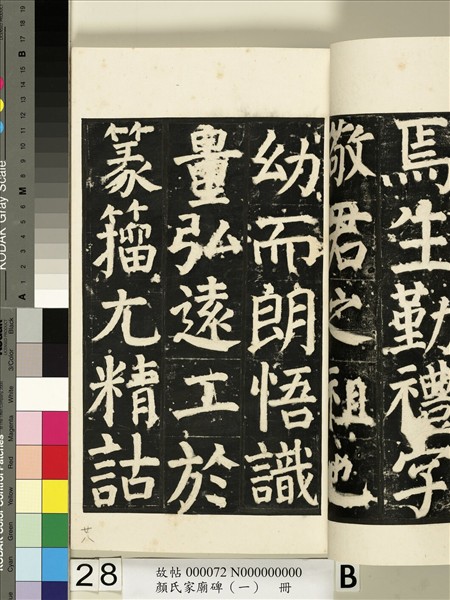 焉生勤禮字
敬君之祖也
幼而朗悟識
量弘遠工於
篆籀尤精詁
廿八
28
故帖 000072 N000000000
顏氏家廟碑(一) 冊
B
KODAK Gray Scale
A 1 2 3 4 5 6 M 8 9 10 11 12 13 14 15 B 17 18 19
KODAK Color Control Patches
Black
3/Color
White
Magenta
Red
Yellow
Green
Cyan